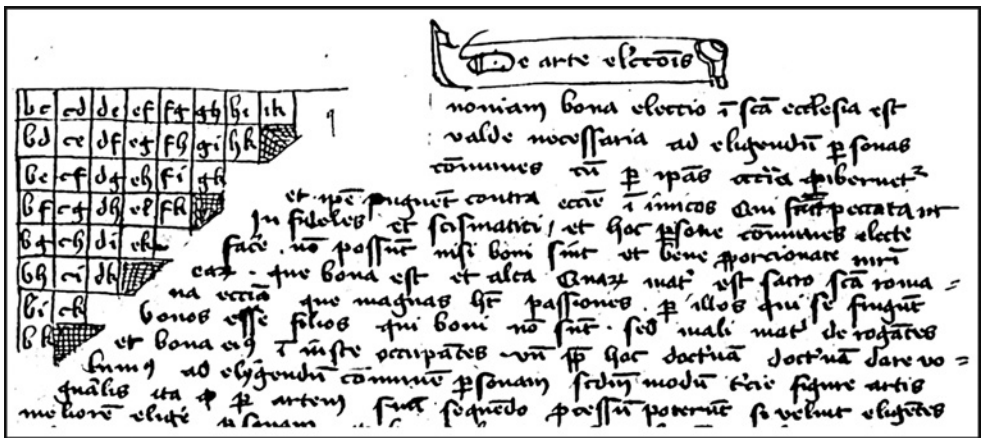 De arte elc̄cōis
bc cd de ef fg gh hi ik
bd ce df eg fh gi hk
be cf dg eh fi gk
bf cg dh ei fk
bg ch di ek
bh ci dk
bi ck
bk
noniam bona eleccio ī scā ecclesia est
valde necessaria ad eligendū psonas
cōmunes
et ip̄e pugnēt contra eccīe ī imicos
Infideles et scismatici / et hoc psone cōmunes electe
facē nō possūnt nisi boni sūnt et bene pporcionate
que bona est et alta est sacro scā roma =
na ecciā que magnas ht passiones p illos qui se fingūt
bonos esse filios qui boni nō sūt . sed mali de rogātes
et bona ei9 ī iuste occupātes . vn̄ pp hoc doct'nā doct'nā dare vo =
lum9 ad elygendū cōmunē psonam scdm̄ modū t'cie figure artis
gnālis ita q p artem suā seqūedo pcessū poterūt si velint eligētes
meliorē eligē psonam